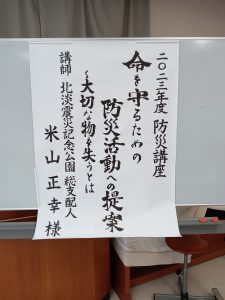 二〇二三年度 防災講座
命を守るための
防災活動への提案
〜大切な物を失うとは
講師 北淡震災記念公園 総支配人
米山正幸様